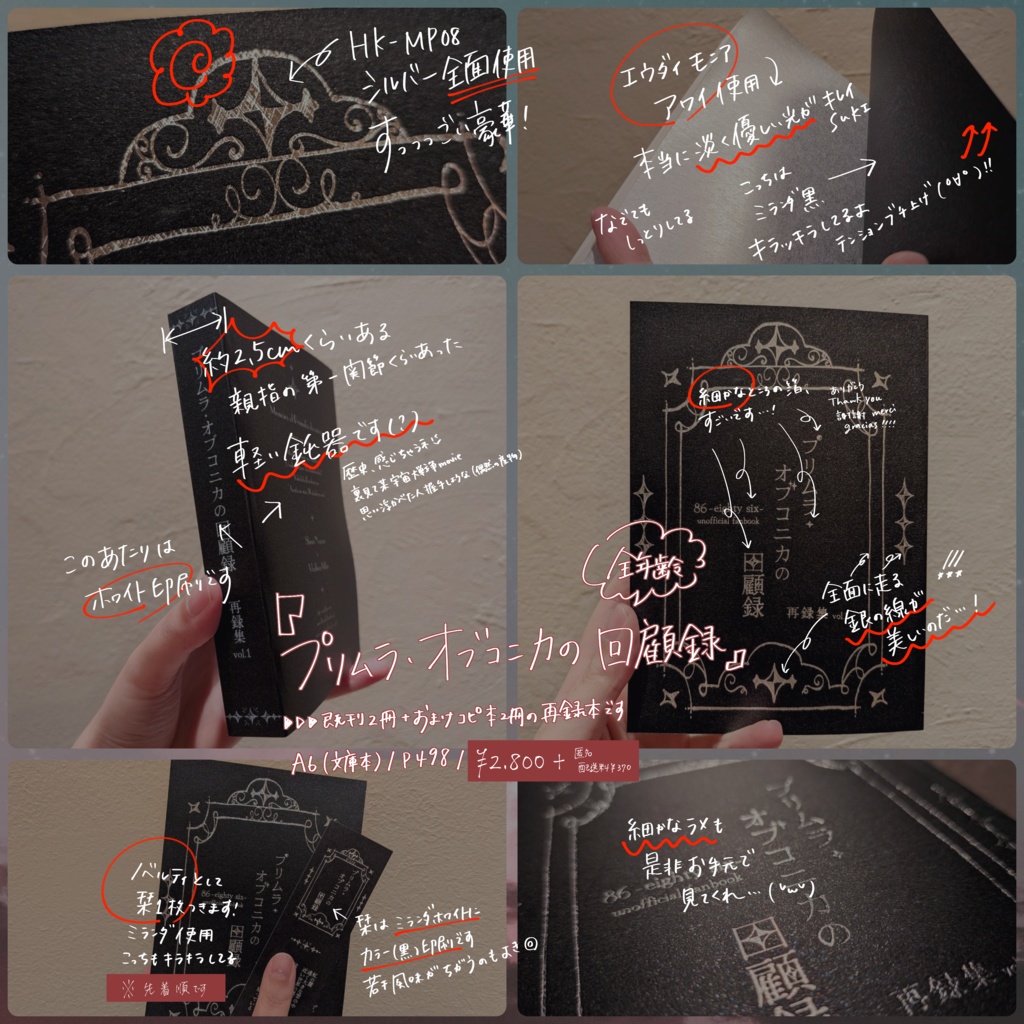 HK-MP08
シルバー全面使用
すっっっごい豪華!
エウダイモニア
アワイ使用
本当に淡く優しい光が
キレイ
SUKI
なでても
しっとりしてる
こっちは
ミランダ黒
キラッキラしてるよ
テンションブチ上げ(°∀°)!!
約2.5cmくらいある
親指の第一関節くらいあった
軽い鈍器です(?)
歴史、感じちゃうネ
裏見て某宇宙大戦争movie
このあたりは
ホワイト印刷です
プリムラ・オブコニカの回顧録
再録集
vol.1
細かなところの箔、
すごいです…!
ありがとう
Thank you
謝謝 merci
gracias!!!!
プリムラ・
オブコニカの
回顧録
86-eighty six-
unofficial fanbook
再録集 vol
全年齢
全面に走る
銀の線が
美しいのだ…!
『プリムラ・オブコニカの回顧録』
▶▷▷既刊2冊+おまけコピ本2冊の再録本です
A6(文庫本)/P498/¥2.800+
匿名
配送料¥370
ノベルティとして
栞1枚つきます!
ミランダ使用
こっちもキラキラしてる
※先着順です
86-eighty six-
プリムラ・
オブコニカの
栞はミランダホワイトに
カラー(黒)印刷です
若干風味がちがうのもよき◎
細かなラメも
是非お手元で
見てくれ…(˘ω˘)
プリムラ・
オブコニカの
回顧録
86-eighty six-
unofficial fanbook
再録集